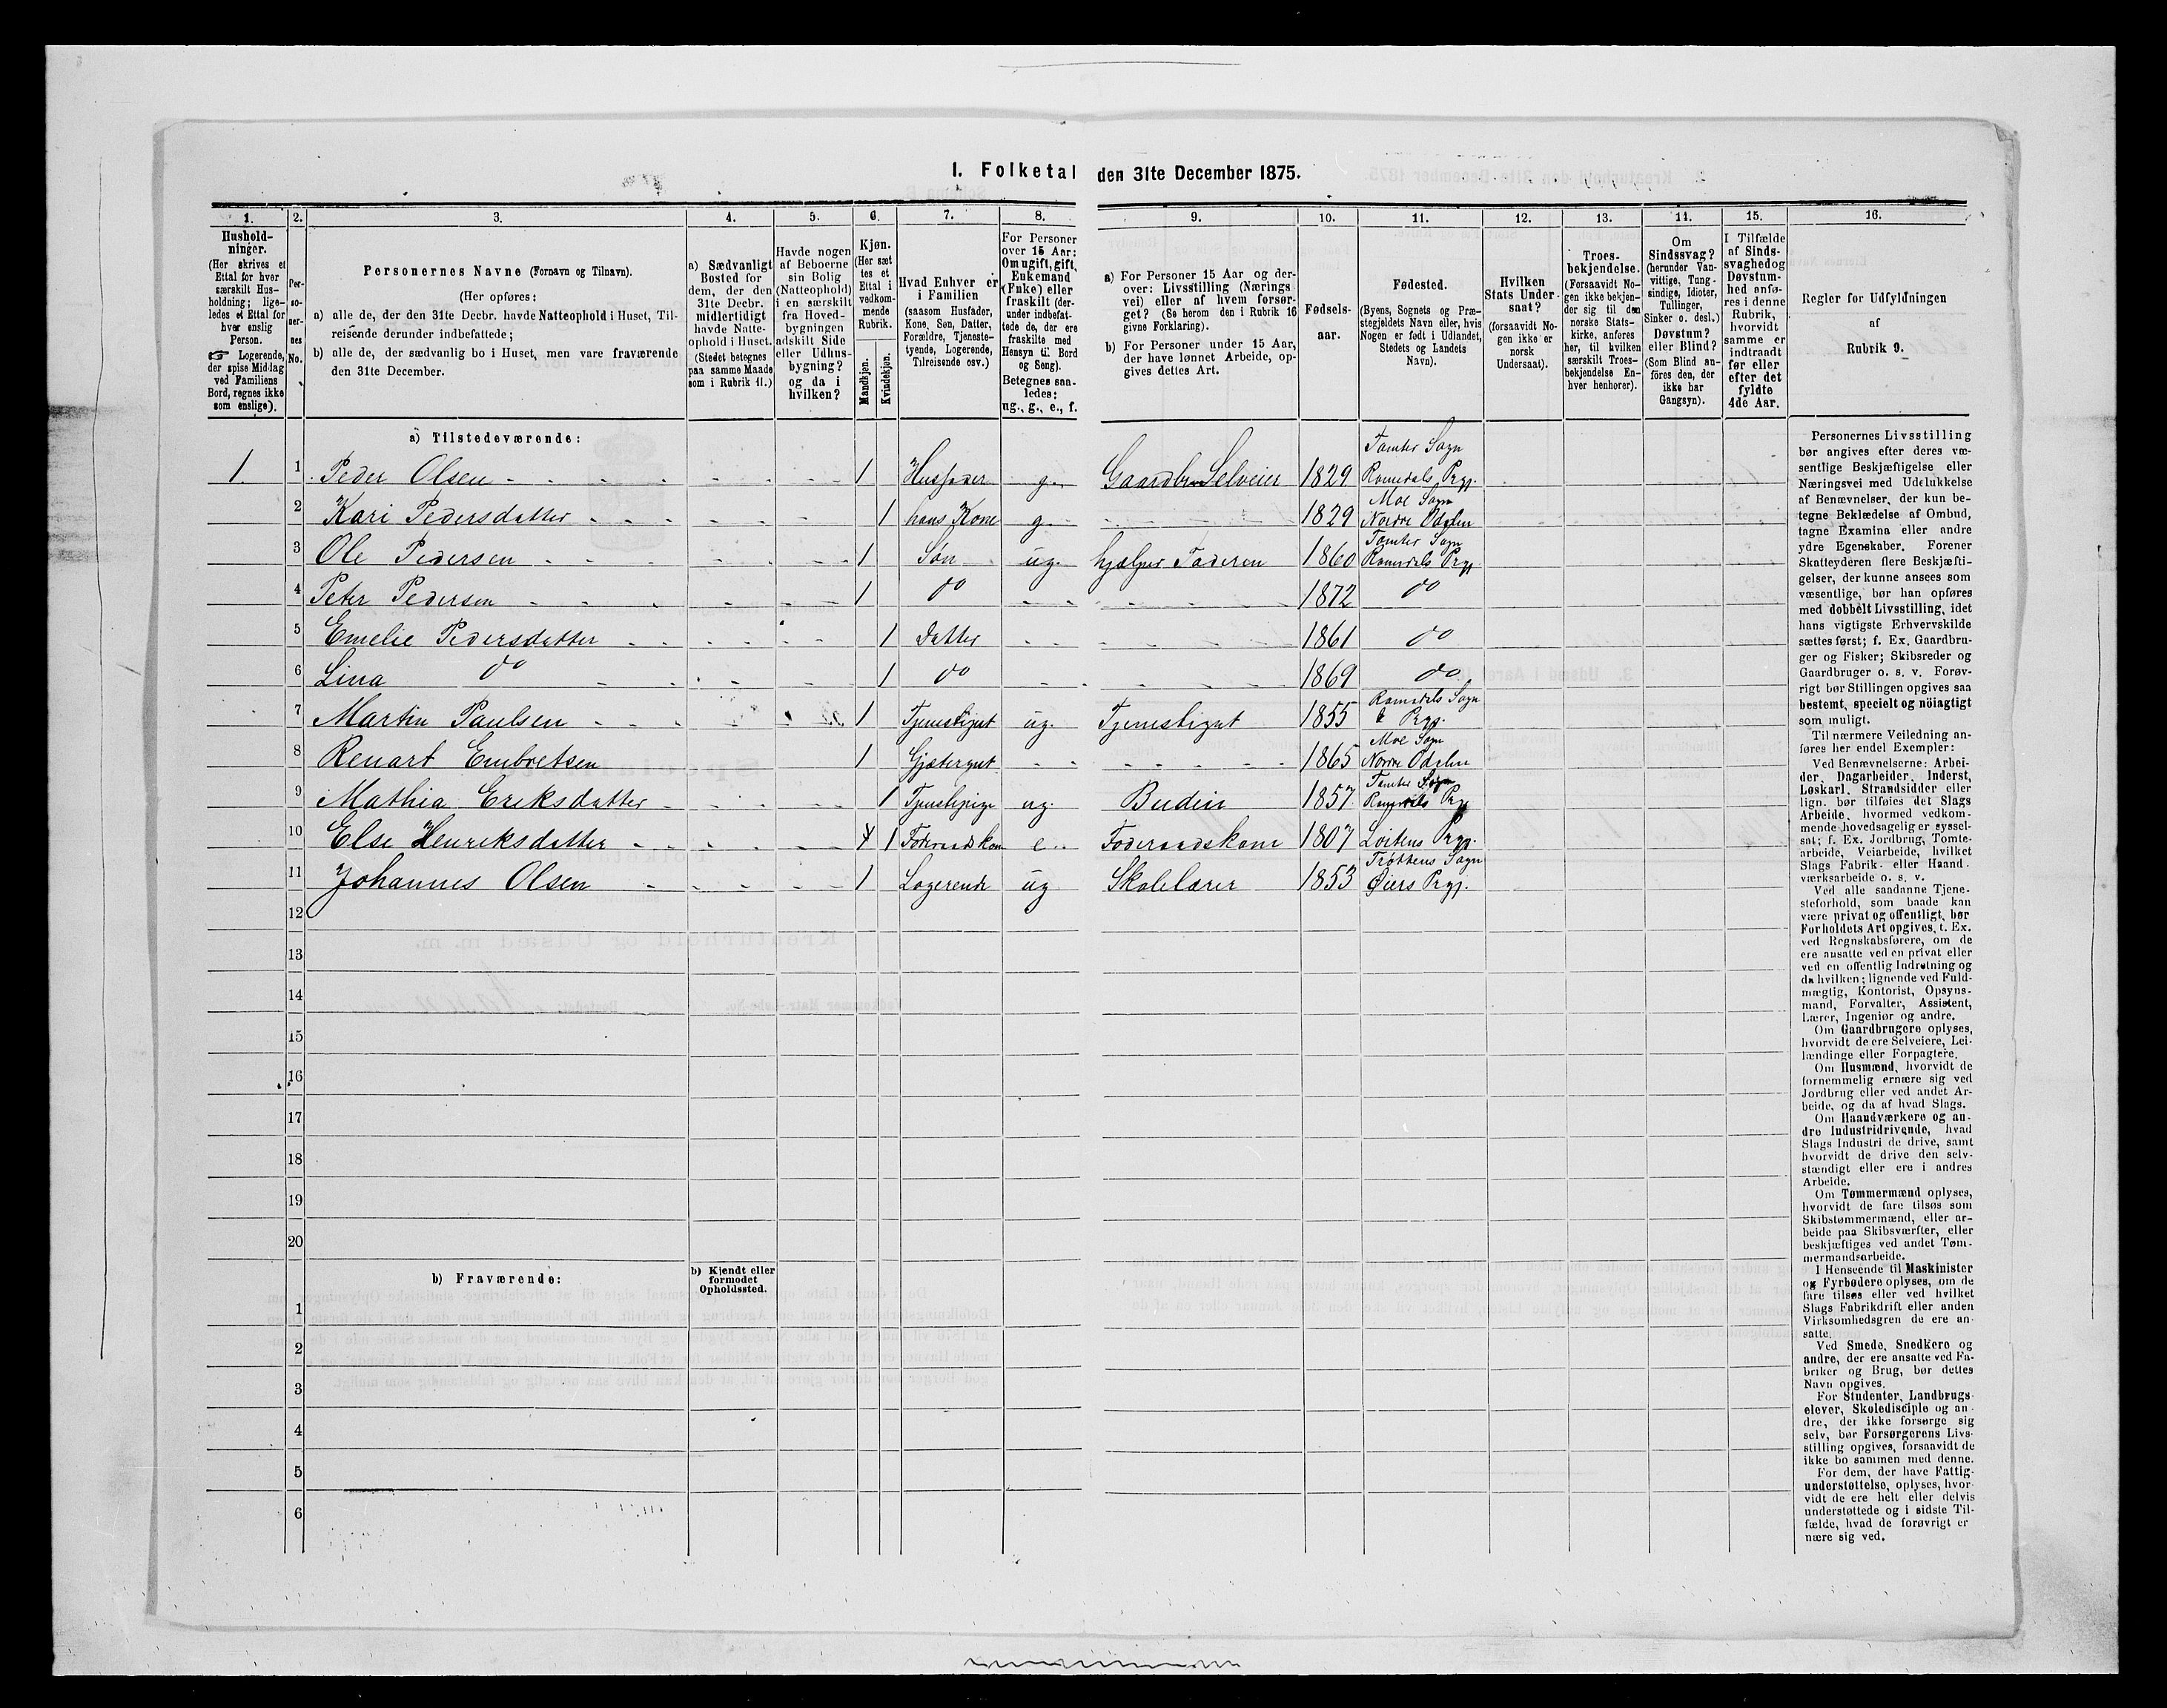 1. Folketal den 31te December 1875.
1. 2. 3. 4. 5. 6. 7. 8. 9. 10. 11. 12. 13. 14. 15. 16.
Hushold-
ninger.
(Her skrives et
Ettal for hver
særskilt Hus-
holdning; lige-
ledes et Ettal for
hver enslig
Person.
☞ Logerende,
der spise Middag
ved Familiens
Bord, regnes ikke
som enslige).
Per-
so-
ner-
nes
No.
Personernes Navne (Fornavn og Tilnavn).
(Her opføres:
a) alle de, der den 31te Decbr. havde Natteophold i Huset, Til-
reisende derunder indbefattede;
b) alle de, der sædvanlig bo i Huset, men vare fraværende
den 31te December.
a) Sædvanligt
Bosted for
dem, der den
31te Decbr.
midlertidigt
havde Natte-
ophold i Huset.
(Stedet betegnes
paa samme Maade
som i Rubrik 11.)
Havde nogen
af Beboerne
sin Bolig
(Natteophold)
i en særskilt
fra Hoved-
bygningen
adskilt Side
eller Udhus-
bygning?
og da i
hvilken?
Kjøn.
(Her sæt
tes et
Ettal i
vedkom-
mende
Rubrik.
Mandkjøn.
Kvindekjøn.
Hvad Enhver er
i Familien
(saasom Husfader,
Kone, Søn, Datter,
Forældre, Tjeneste-
tyende, Logerende,
Tilreisende osv.)
For Personer
over 15 Aar:
Om ugift, gift,
Enkemand
(Enke) eller
fraskilt (der-
under indbefat-
tede de, der ere
fraskilte med
Hensyn til Bord
og Seng).
Betegnes saa-
ledes:
ug., g., e., f.
a) For Personer 15 Aar og der-
over: Livsstilling (Nærings
vei) eller af hvem forsør-
get? (Se herom den i Rubrik 16
givne Forklaring).
b) For Personer under 15 Aar,
der have lønnet Arbeide, op-
gives dettes Art.
Fødsels-
aar.
Fødested.
(Byens, Sognets og Præ-
stegjeldets Navn eller, hvis
Nogen er født i Udlandet,
Stedets og Landets
Navn).
Hvilken
Stats Under-
saat?
(forsaavidt No-
gen ikke er
norsk
Undersaat).
Troes-
bekjendelse.
(Forsaavidt No-
gen ikke bekjen-
der sig til den
norske Stats-
kirke, anføres
her, til hvilken
særskilt Troes-
bekjendelse En-
hver henhører).
Om
Sindssvag?
(herunder Van-
vittige, Tung-
sindige, Idioter,
Tullinger,
Sinker o. desl.)
Døvstum?
eller Blind?
(Som Blind an-
föres den, der
ikke har
Gangsyn).
I Tilfælde
af Sinds-
svaghed og
Døvstum-
hed anfø-
res i denne
Rubrik,
hvorvidt
samme er
indtraadt
før eller
efter det
fyldte
4de Aar.
Regler for Udfyldningen
af
Rubrik 9.
a) Tilstedeværende:
1. 1 Peder Olsen 1 Husfader g. Gaardbr. Selveier 1829 Tomter Sogn Romedals Prgj.
2 Kari Pedersdatter 1 hans Kone g. 1829 Moe Sogn Nordre Odalen
3 Ole Pedersen 1 Søn ug. hjælper Faderen 1860 Tomter Sogn Romedals Prgj
4 Peter Pedersen 1 do 1872 do
5 Emelie Pedersdatter 1 Datter 1861 do
6 Lina do 1 do 1869 do
7 Martin Paulsen 1 Tjenestegut ug. Tjenestegut 1855 Romedals Sogn & Prgj.
8 Renart Embretsen 1 Gjætergut 1865 Moe Sogn Nordre Odalen
9 Mathia Eriksdatter 1 Tjenstepige ug. Budeie 1857 Tomter Sogn Romedals Prgj
10 Else Henriksdatter 1 Foderaadskone e. Foderaadskone 1807 Løitens Prgj.
11 Johannes Olsen 1 Logerende ug Skolelærer 1853 Trøttens Sogn Øiers Prgj.
12
13
14
15
16
17
18
19
20
b) Fraværende:
b) Kjendt eller
formodet
Opholdssted.
1
2
3
4
5
6
Personernes Livsstilling
bør angives efter deres væ-
sentlige Beskjæftigelse eller
Næringsvei med Udelukkelse
af Benævnelser, der kun be-
tegne Beklædelse af Ombud,
tagne Examina eller andre
ydre Egenskaber. Forener
Skatteyderen flere Beskjæfti-
gelser, der kunne ansees som
væsentlige, bør han opføres
med dobbelt Livsstilling, idet
hans vigtigste Erhvervskilde
sættes først; f. Ex. Gaardbru-
ger og Fisker; Skibsreder og
Gaardbruger o. s. v. Forøv-
rigt bør Stillingen opgives saa
bestemt, specielt og nöiagtigt
som muligt.
Til nærmere Veiledning an-
føres her endel Exempler:
Ved Benævnelserne: Arbei-
der, Dagarbeider, Inderst,
Løskarl, Strandsidder eller
lign. bør tilføies det Slags
Arbeide, hvormed vedkom-
mende hovedsagelig er syssel-
sat; f. Ex. Jordbrug, Tomte-
arbeide, Veiarbeide, hvilket
Slags Fabrik- eller Haand-
værksarbeide o. s. v.
Ved alle saadanne Tjene-
steforhold, som baade kan
være privat og offentligt, bør
Forholdets Art opgives, t. Ex.
ved Regnskabsførere, om de
ere ansatte ved en privat eller
ved en offentlig Indretning og
da hvilken; lignende ved Fuld-
mægtig, Kontorist, Opsyns-
mand, Forvalter, Assistent,
Lærer, Ingeniør og andre.
Om Gaardbrugere oplyses,
hvorvidt de ere Selveiere, Lei-
lændinge eller Forpagtere.
Om Husmænd, hvorvidt de
fornemmelig ernære sig ved
Jordbrug eller ved andet Ar-
beide, og da af hvad Slags.
Om Haandværkere og an-
dre Industridrivende, hvad
Slags Industri de drive, samt
hvorvidt de drive den selv-
stændigt eller ere i andres
Arbeide.
Om Tømmermænd oplyses,
hvorvidt de fare tilsøs som
Skibstømmermænd, eller ar-
beide paa Skibsværfter, eller
beskjæftiges ved andet Tøm-
mermandsarbeide.
I Henseende til Maskinister
og Fyrbødere oplyses, om de
fare tilsøs eller ved hvilket
Slags Fabrikdrift eller anden
Virksomhedsgren de ere an-
satte.
Ved Smede, Snedkere og
andre, der ere ansatte ved Fa-
briker og Brug, bør dettes
Navn opgives.
For Studenter, Landbrugs-
elever, Skoledisciple og an-
dre, der ikke forsørge sig
selv, bør Forsørgerens Livs-
stilling opgives, forsaavidt de
ikke bo sammen med denne.
For dem, der have Fattig-
understøttelse, oplyses, hvor-
vidt de ere helt eller delvis
understøttede og i sidste Til-
fælde, hvad de forøvrigt er
nære sig ved.